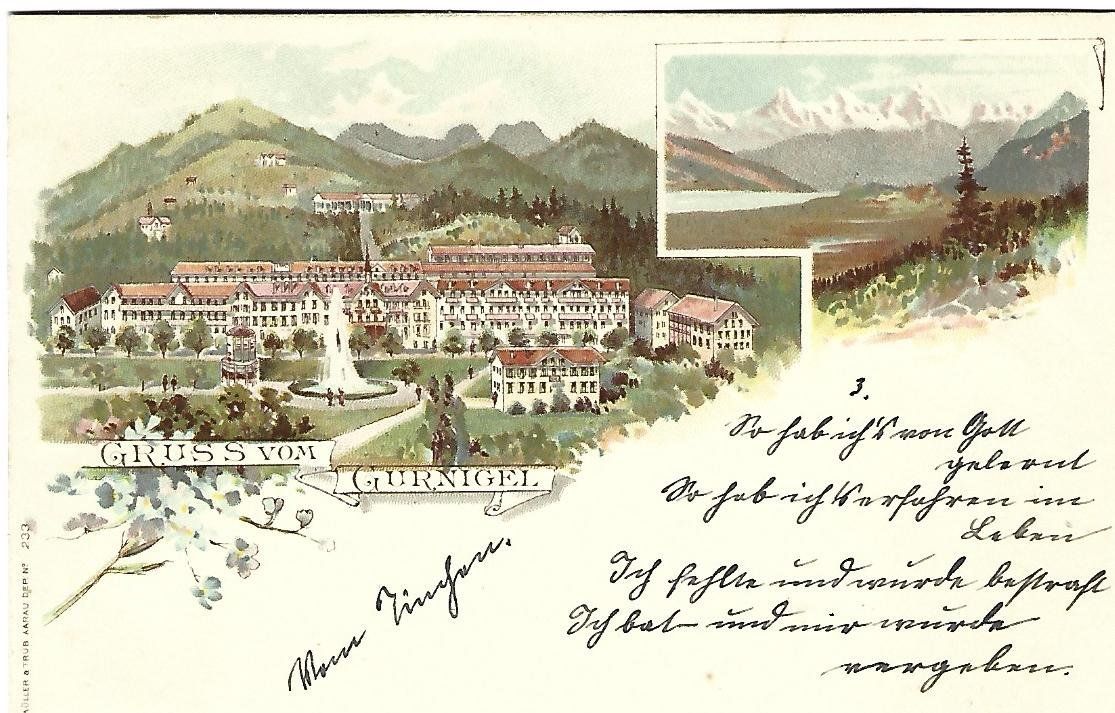 GRUSS VOM
GURNIGEL
3.
So hab ich's von Gott
gelernt
So hab ich's erfahren im
Leben
Ich fehlte und wurde bestraft
Ich bat und mir wurde
vergeben.
Vom
MÜLLER & TRÜB AARAU DEP. Nº 233